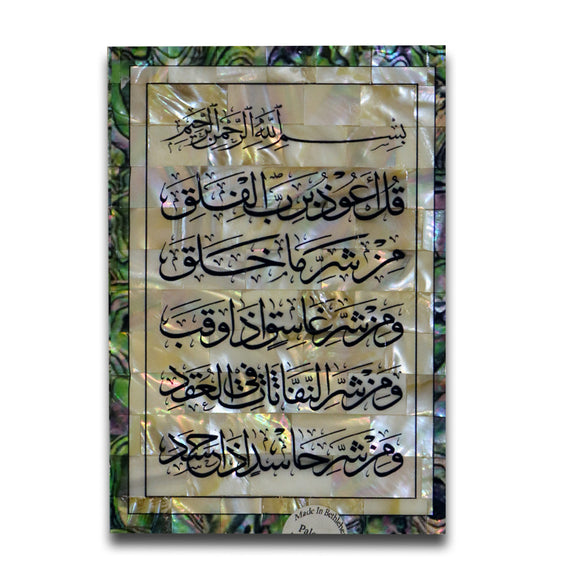 بِسْمِ ٱللَّهِ ٱلرَّحْمَٰنِ ٱلرَّحِيمِ
قُلْ أَعُوذُ بِرَبِّ الْفَلَقِ
مِنْ شَرِّ مَا خَلَقَ
وَمِنْ شَرِّ غَاسِقٍ إِذَا وَقَبَ
وَمِنْ شَرِّ النَّفَّاثَاتِ فِي الْعُقَدِ
وَمِنْ شَرِّ حَاسِدٍ إِذَا حَسَدَ
Made In Bethlehem